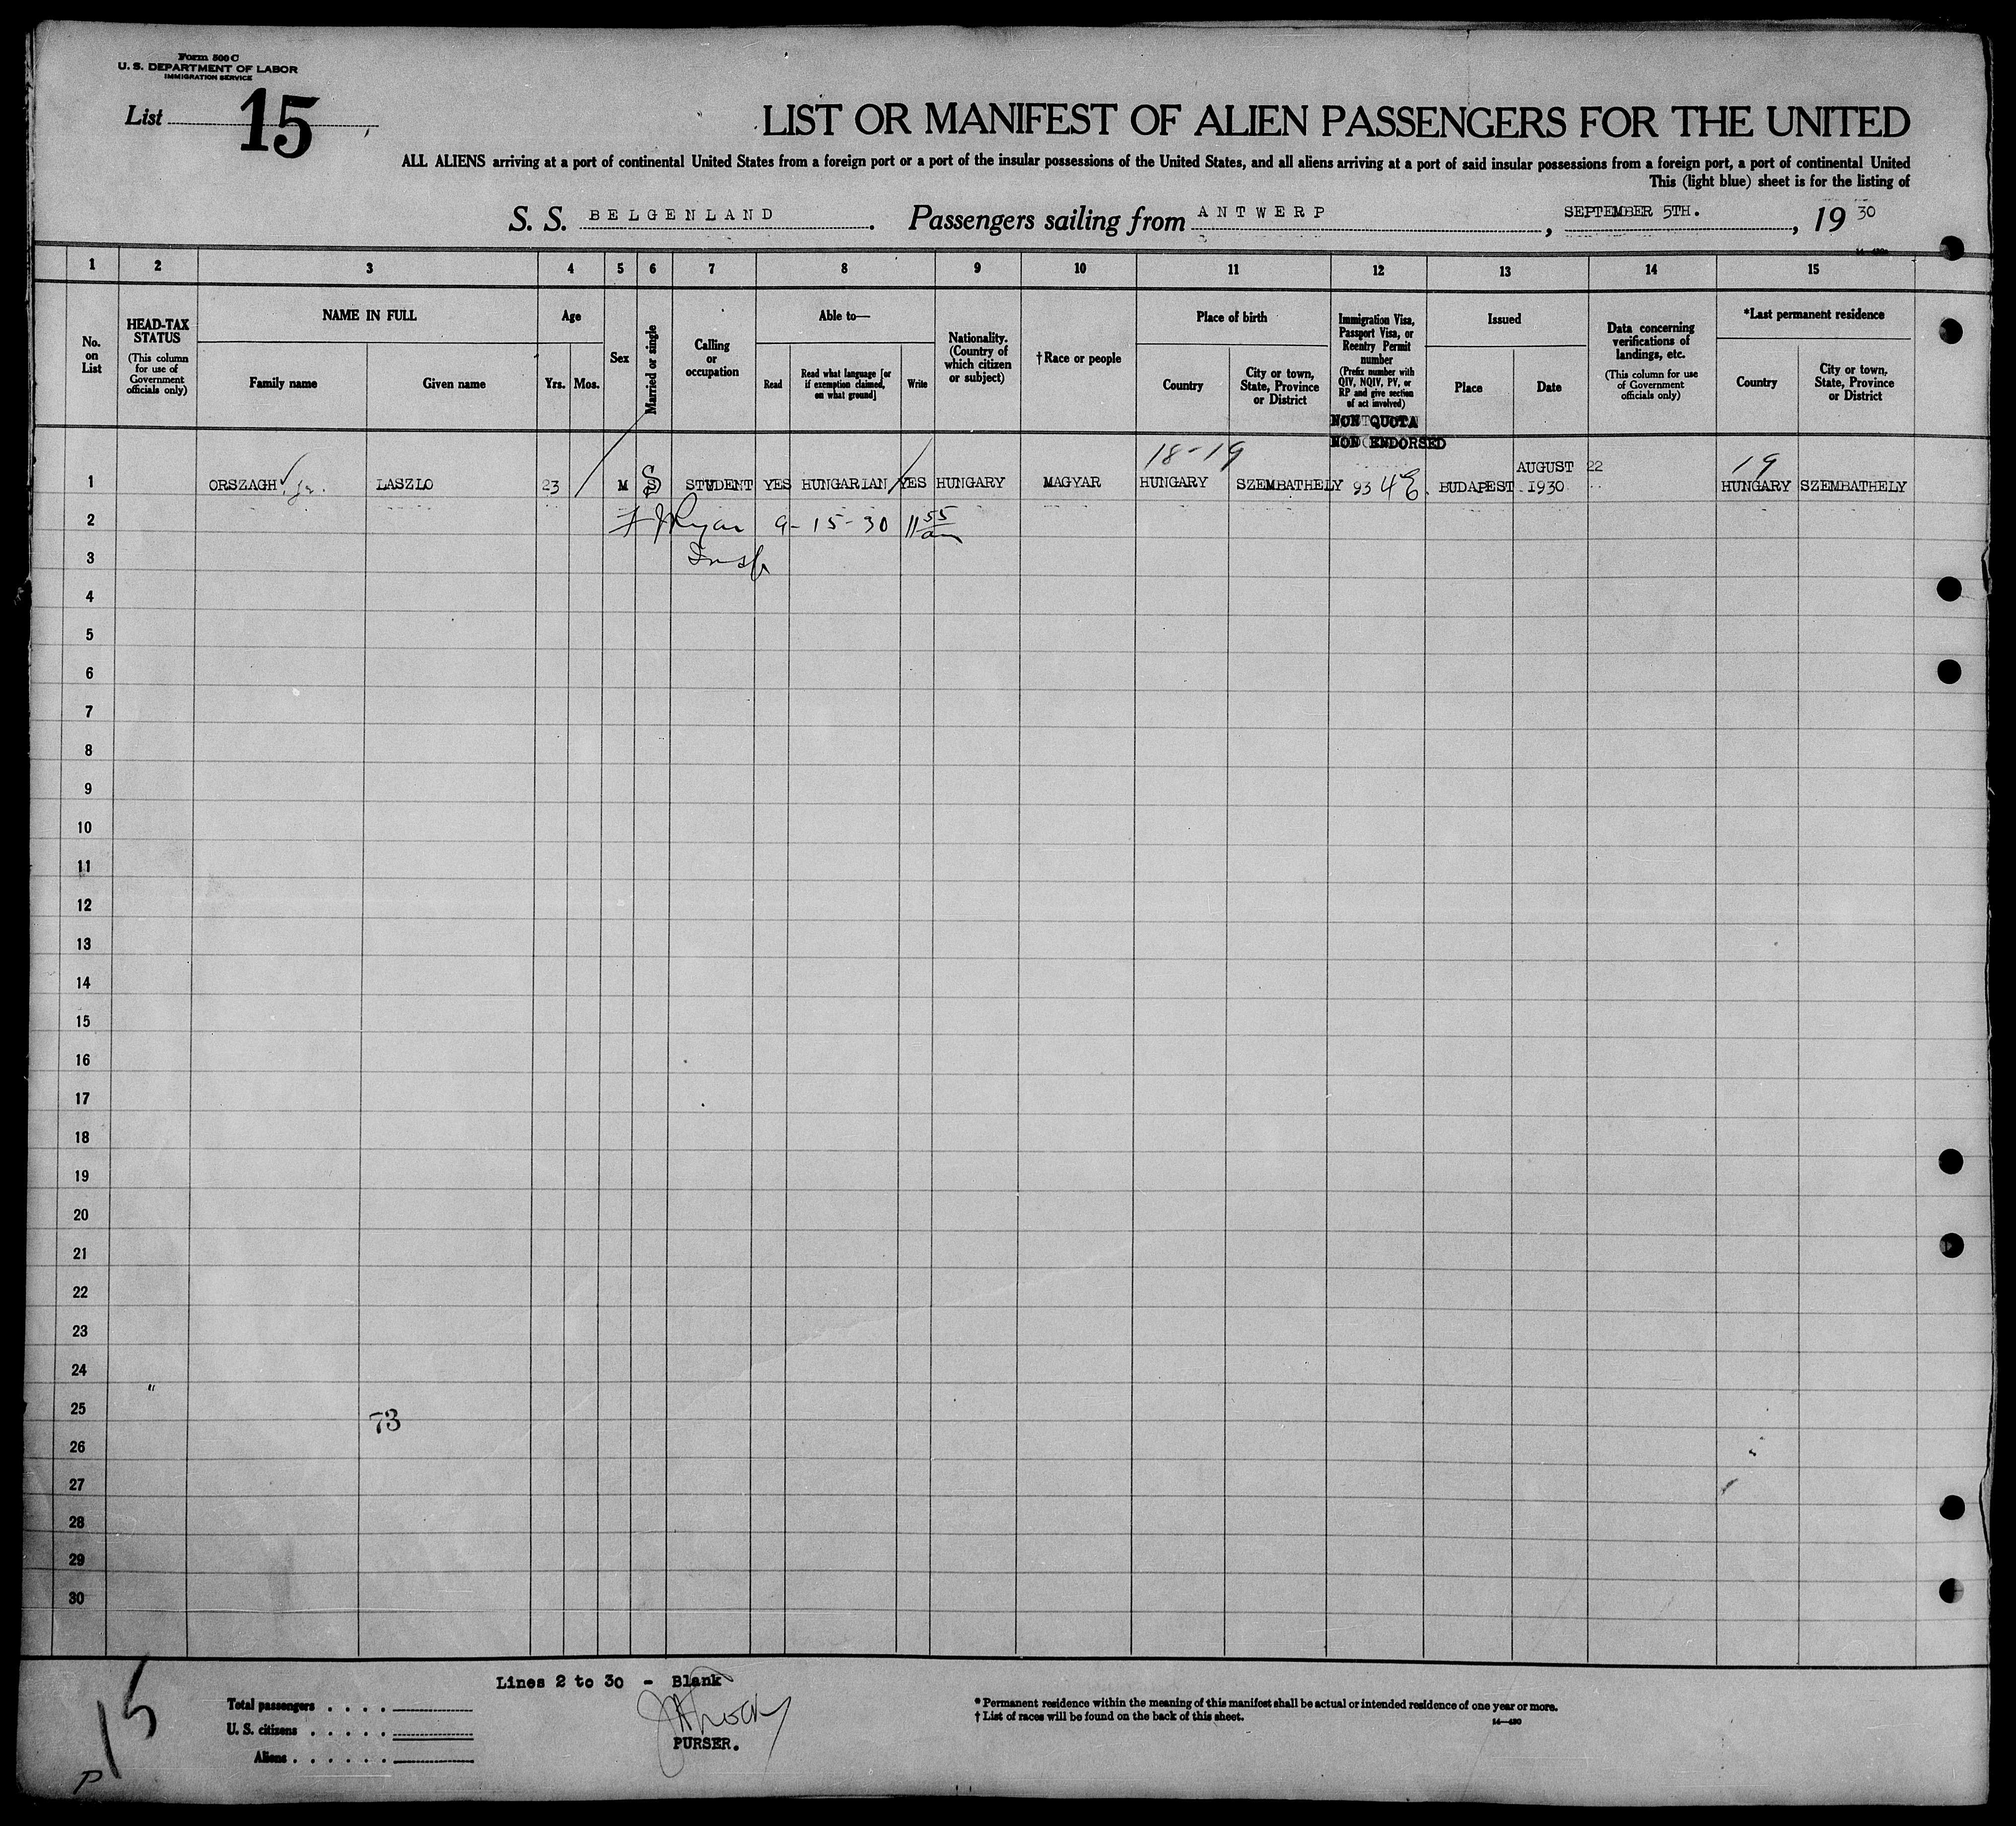 Form 500 C
U. S. DEPARTMENT OF LABOR
IMMIGRATION SERVICE
List 15
LIST OR MANIFEST OF ALIEN PASSENGERS FOR THE UNITED
ALL ALIENS arriving at a port of continental United States from a foreign port or a port of the insular possessions of the United States, and all aliens arriving at a port of said insular possessions from a foreign port, a port of continental United
This (light blue) sheet is for the listing of
S. S. BELGENLAND. Passengers sailing from ANTWERP, SEPTEMBER 5TH., 19 30
1 2 3 4 5 6 7 8 9 10 11 12 13 14 15
No. on List
HEAD-TAX STATUS
(This column for use of Government officials only)
NAME IN FULL
Family name
Given name
Age
Yrs. Mos.
Sex
Married or single
Calling or occupation
Able to—
Read
Read what language [or if exemption claimed, on what ground]
Write
Nationality. (Country of which citizen or subject)
†Race or people
Place of birth
Country
City or town, State, Province or District
Immigration Visa, Passport Visa, or Reentry Permit number
(Prefix number with QIV, NQIV, PV, or RP and give section of act involved)
NON QUOTA
NON ENDORSED
Issued
Place
Date
Data concerning verifications of landings, etc.
(This column for use of Government officials only)
*Last permanent residence
Country
City or town, State, Province or District
18-19 AUGUST 22 19
1 ORSZAGH jr. LASZLO 23 M S STUDENT YES HUNGARIAN YES HUNGARY MAGYAR HUNGARY SZEMBATHELY 93 4E. BUDAPEST 1930 HUNGARY SZEMBATHELY
2 F J Ryan 9-15-30 11 55 am
3 Insp
4
5
6
7
8
9
10
11
12
13
14
15
16
17
18
19
20
21
22
23
24
25
73
26
27
28
29
30
Lines 2 to 30 - Blank
Total passengers
U. S. citizens
Aliens
PURSER.
* Permanent residence within the meaning of this manifest shall be actual or intended residence of one year or more.
† List of races will be found on the back of this sheet.
14—430
15
P